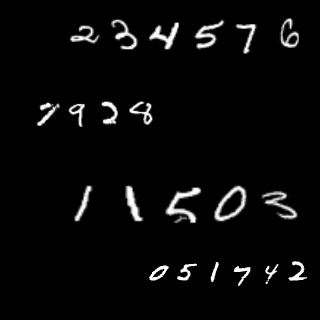 234576
7928
11503
051742